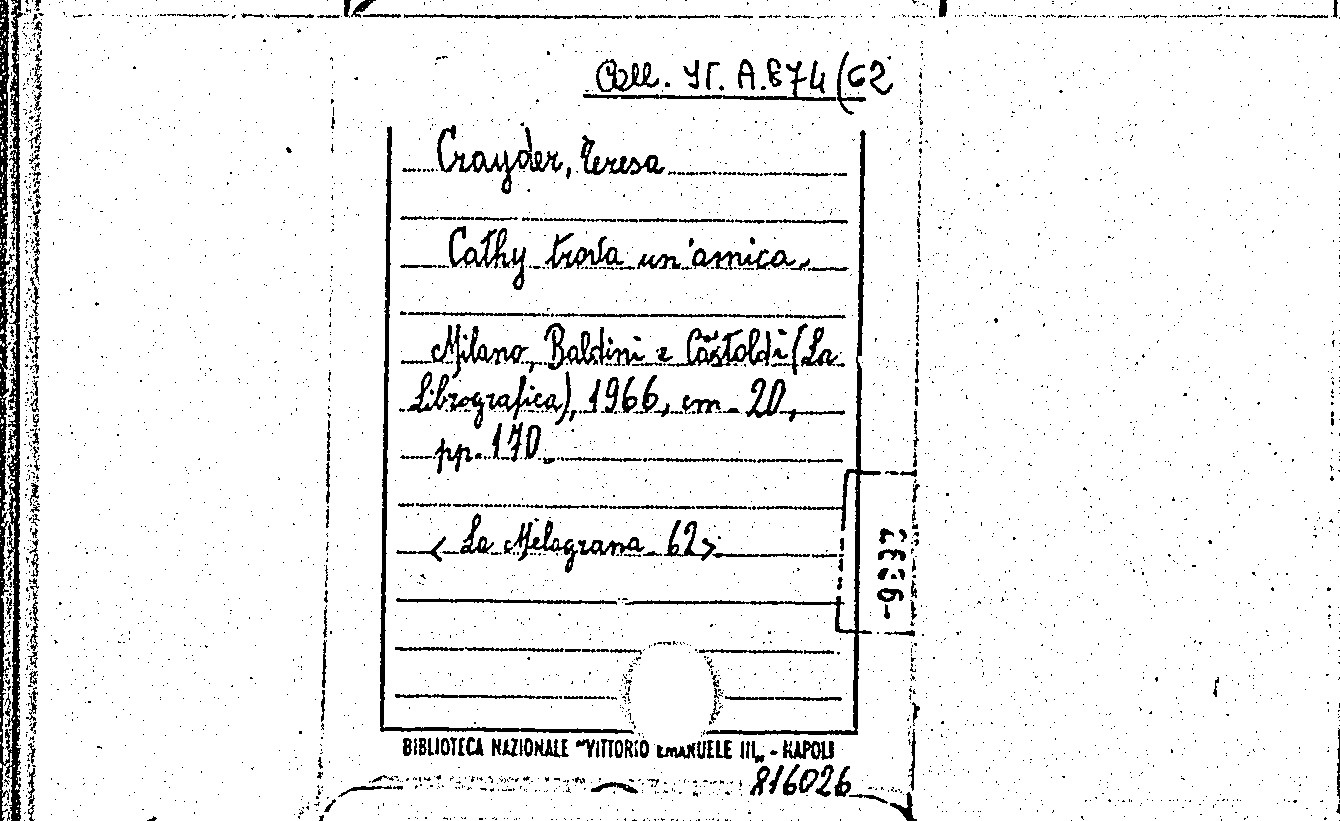 Coll. VI. A. 874 (62
Crayder, Teresa
Cathy trova un'amica.
Milano, Baldini e Castoldi (La
Librografica), 1966, cm. 20,
pp. 170.
< La Melagrana. 62>.
BIBLIOTECA NAZIONALE "VITTORIO EMANUELE III„ - NAPOLI
816026